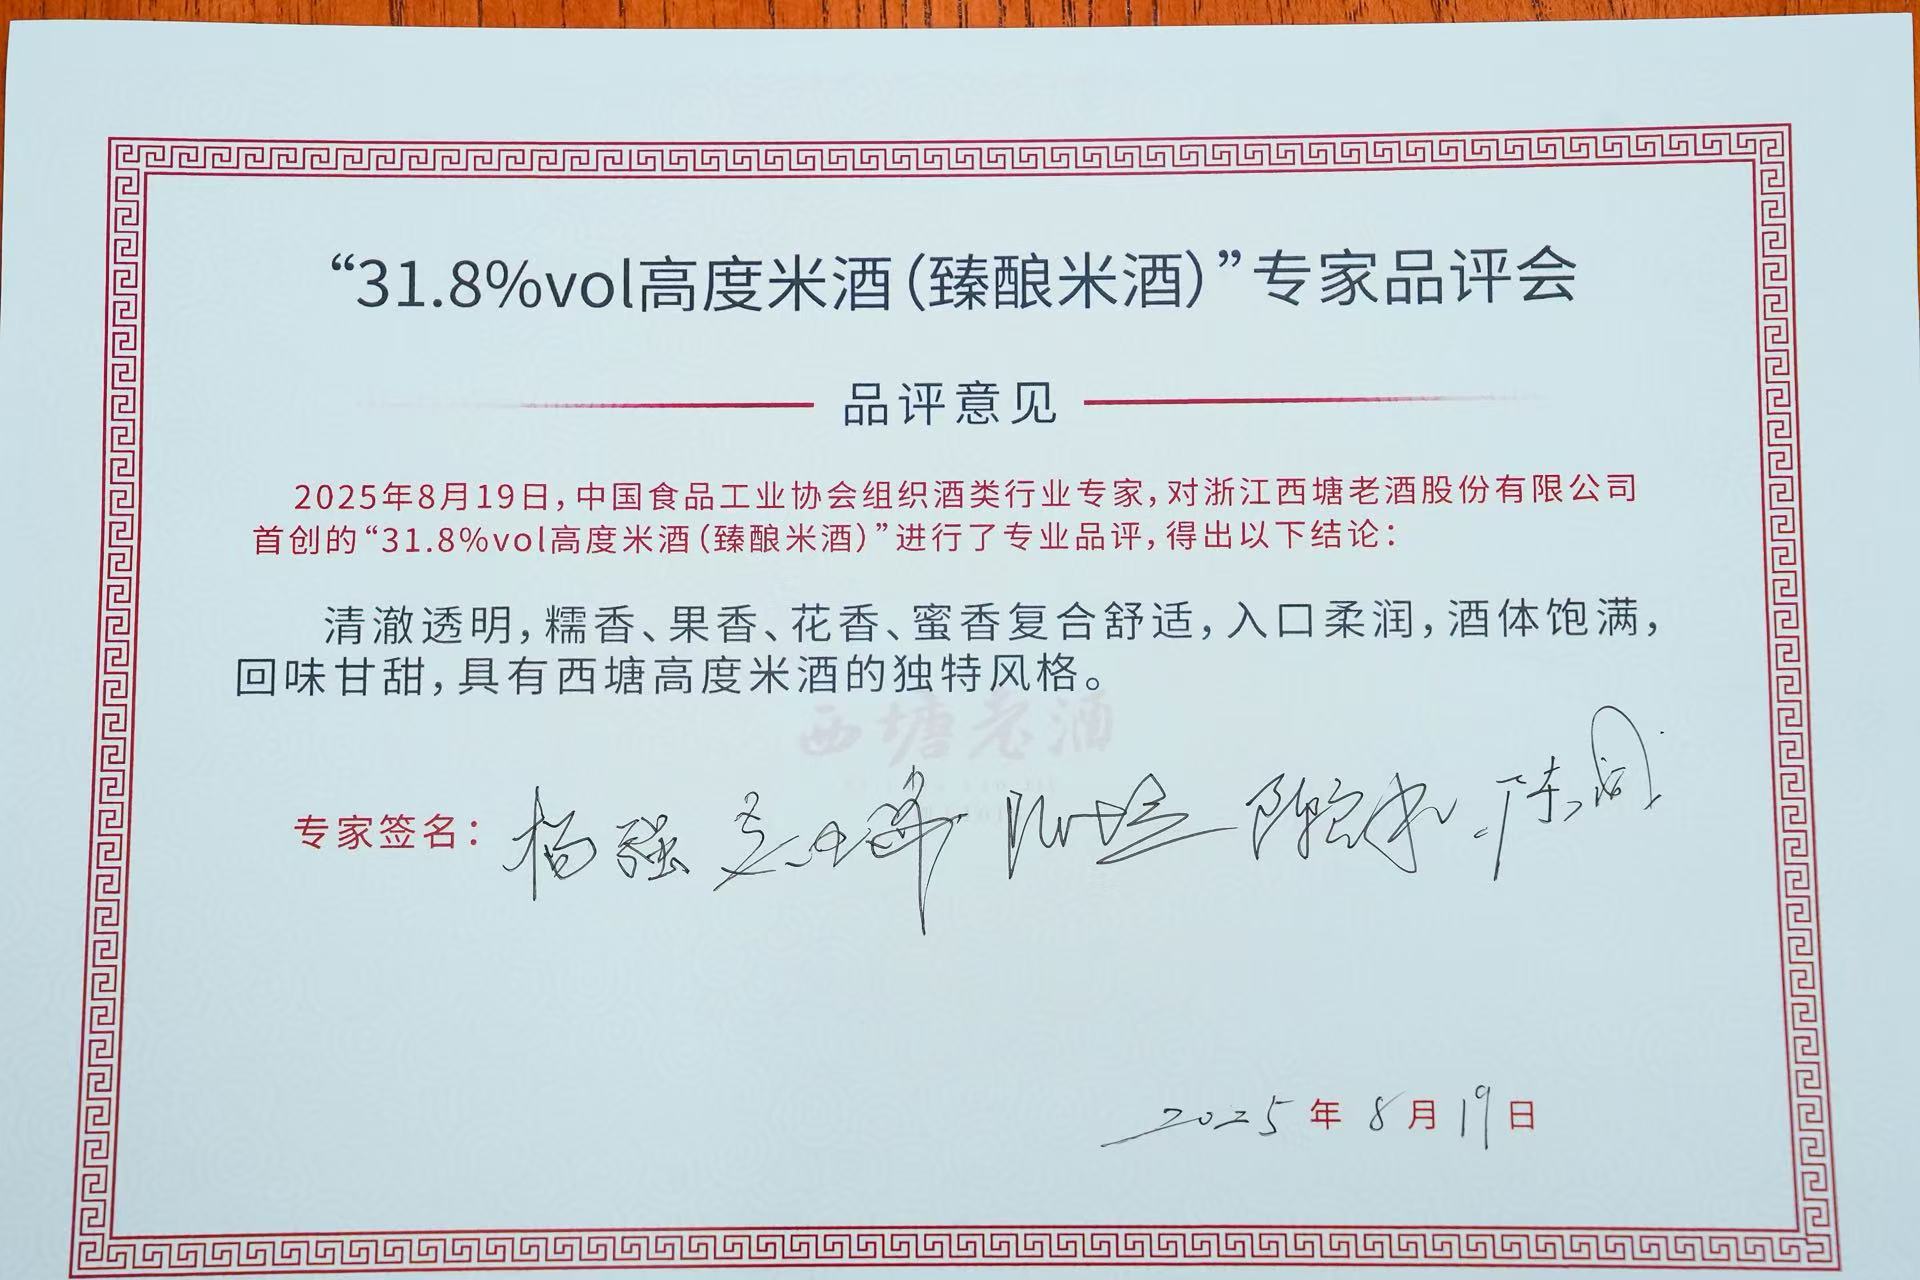 “31.8%vol高度米酒（臻酿米酒）”专家品评会
品评意见
2025年8月19日，中国食品工业协会组织酒类行业专家，对浙江西塘老酒股份有限公司
首创的“31.8%vol高度米酒（臻酿米酒）”进行了专业品评，得出以下结论：
清澈透明，糯香、果香、花香、蜜香复合舒适，入口柔润，酒体饱满，
回味甘甜，具有西塘高度米酒的独特风格。
西塘老酒
专家签名： 杨强
2025年8月19日